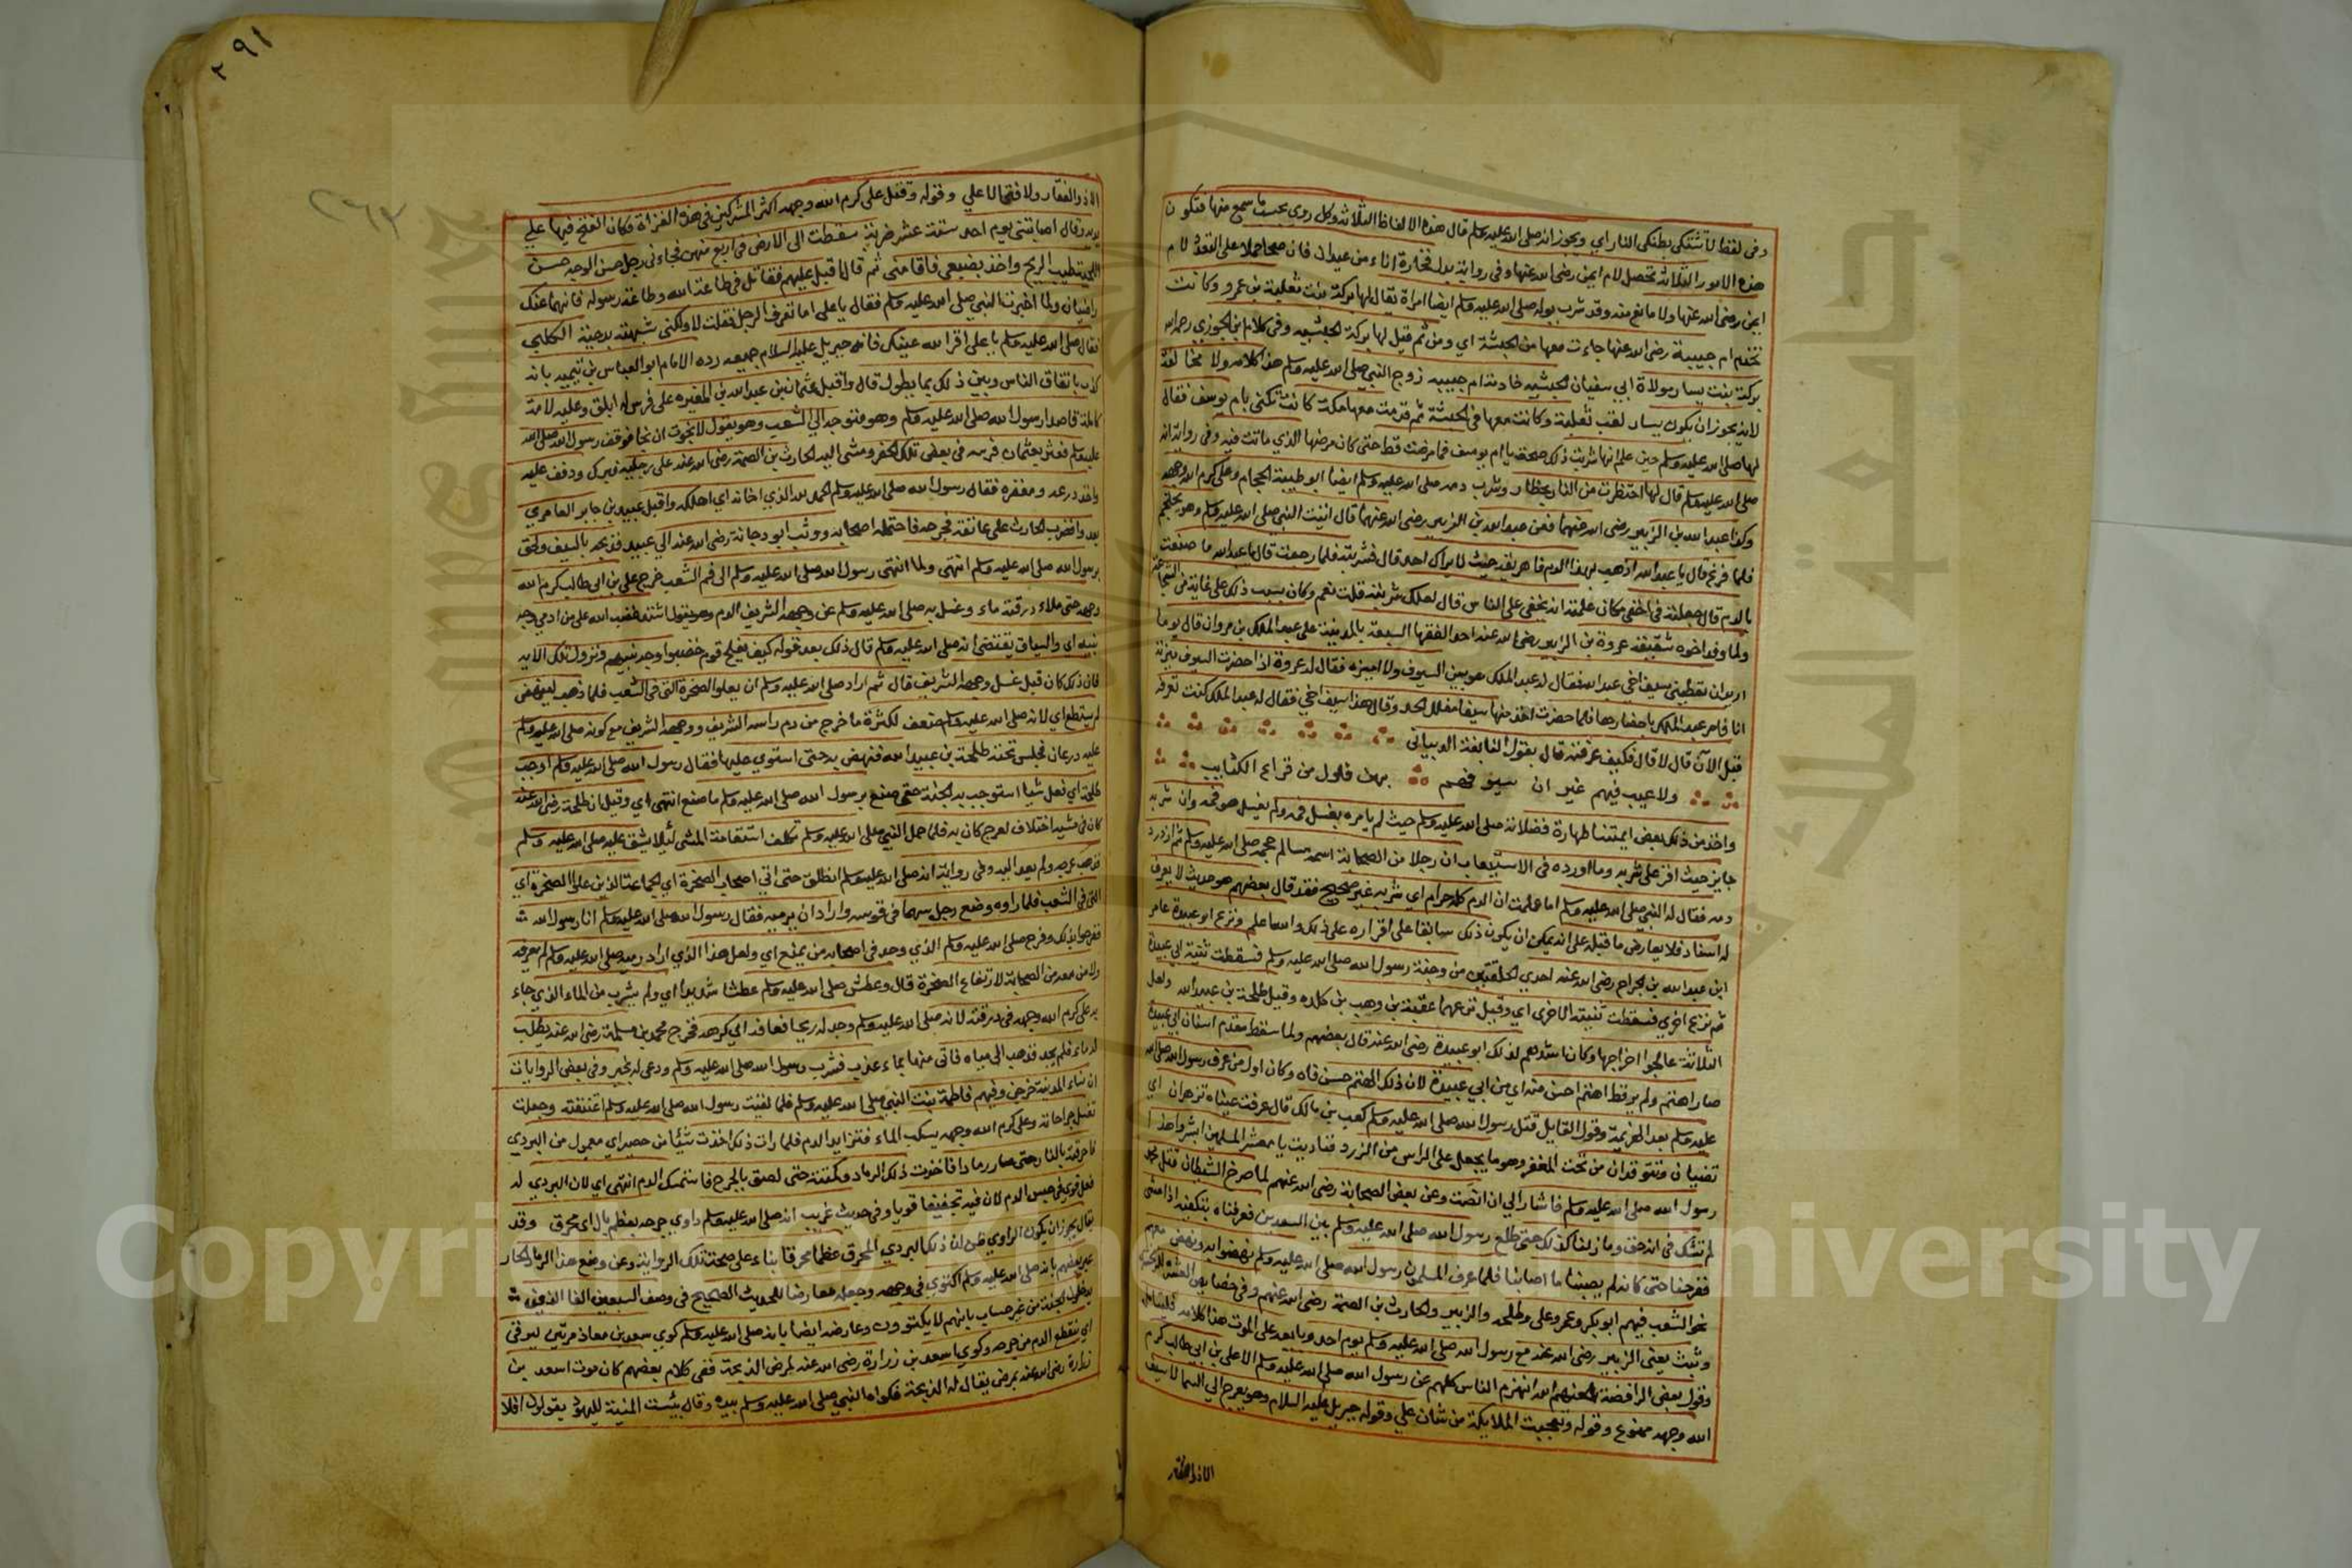 وفى لفظ لا تشتكى بطنكى النار اي ويجوز انه صلى الله عليه وسلم قال هذه الالفاظ الثلاثة وكل روي بحسب ما سمع منها فتكون
هذه الامور الثلاثة تحصل لام ايمن رضى الله عنها وفى رواية بدل فخارة اناء من عيدان فان صحا حملا على التعدد لام
ايمن رضى الله عنها ولا مانع منه وقد شرب بوله صلى الله عليه وسلم ايضا امراة يقال لها بركة بنت ثعلبة بن عمرو وكانت
تخدم ام حبيبة رضى الله عنها جاءت معها من الحبشة اي ومن ثم قيل لها بركة الحبشيه وفى كلام ابن الجوزي رحمه الله
بركة بنت يسار مولاة ابي سفيان الحبشيه خادمة ام حبيبه زوج النبي صلى الله عليه وسلم هذا كلامه ولا مخالفة
لانه يجوز ان يكون يسار لقب ثعلبة وكانت معها فى الحبشة ثم قدمت معها مكة كانت تكنى بام يوسف فقال
لها صلى الله عليه وسلم حين علم انها شربت ذلك صحة يا ام يوسف فما مرضت قط حتى كان مرضها الذي ماتت فيه وفى رواية انه
صلى الله عليه وسلم قال لها احتظرت من النار بحظار وشرب دمه صلى الله عليه وسلم ايضا ابو طيبة الحجام وعلى كرم الله وجهه
وكذا عبد الله بن الزبير رضى الله عنهما فعن عبد الله بن الزبير رضى الله عنهما قال اتيت النبي صلى الله عليه وسلم وهو يحتجم
فلما فرغ قال يا عبد الله اذهب بهذا الدم فاهريقه حيث لا يراك احد قال فشربته فلما رجعت قال يا عبد الله ما صنعت
بالدم قال جعلته فى اخفى مكان علمت انه يخفى على الناس قال لعلك شربته قلت نعم وكان بسبب ذلك على غاية من الشجاعة
ولما وفد اخوه شقيقه عروة بن الزبير رضى الله عنه احد الفقها السبعة بالمدينة على عبد الملك بن مروان قال يوما
اريد ان تعطيني سيف اخي عبد الله فقال له عبد الملك هو بين السيوف ولا اميزه فقال له عروة اذا حضرت السيوف ميزته
انا فامر عبد الملك باحضارها فلما حضرت اخذ منها سيفا مفلل الحد وقال هذا سيف اخي فقال له عبد الملك كنت تعرفه
قبل الآن قال لا قال فكيف عرفته قال بقول النابغة الذبياني
ولا عيب فيهم غير ان سيوفهم بهن فلول من قراع الكتايب
واخذ من ذلك بعض ايمتنا طهارة فضلاته صلى الله عليه وسلم حيث لم يامره بغسل فمه ولم يغسل هو فمه وان شربه
جايز حيث اقر على شربه وما اورده فى الاستيعاب ان رجلا من الصحابة اسمه سالم حجمه صلى الله عليه وسلم ثم ازدرد
دمه فقال له النبي صلى الله عليه وسلم اما علمت ان الدم كله حرام اي شربه غير صحيح فقد قال بعضهم هو حديث لا يعرف
له اسناد فلا يعارض ما قبله على انه يمكن ان يكون ذلك سابقا على اقراره على ذلك والله اعلم ونزع ابو عبيدة عامر
ابن عبد الله بن الجراح رضى الله عنه احدي الحلقتين من وجنة رسول الله صلى الله عليه وسلم فسقطت ثنية ابي عبيدة
ثم نزع اخري فسقطت ثنيته الاخرى اي وقيل نزعهما عقبة بن وهب بن كلده وقيل طلحة بن عبيد الله ولعل
الثلاثة عالجوا اخراجها وكان اشدهم لذلك ابو عبيدة رضى الله عنه قال بعضهم ولما سقط مقدم اسنان ابي عبيدة
صار اهتم ولم ير قط اهتم احسن منه اي من ابي عبيدة لان ذلك الهتم حسن فاه وكان اول من عرف رسول الله صلى الله
عليه وسلم بعد الهزيمة وقول القايل قتل رسول الله صلى الله عليه وسلم كعب بن مالك قال عرفت عيناه تزهران اي
تضيئان وتتوقدان من تحت المغفر وهو ما يجعل على الراس من الزرد فناديت يا معشر المسلمين ابشروا هذا
رسول الله صلى الله عليه وسلم فاشار الي ان انصت وعن بعض الصحابة رضى الله عنهم لما صرخ الشيطان قتل محمد
لم نشك فى انه حق وما زلنا كذلك حتى طلع رسول الله صلى الله عليه وسلم بين السعدين فعرفناه بتكفيه اذا مشى
ففرحنا حتى كانه لم يصبنا ما اصابنا فلما عرف المسلمون رسول الله صلى الله عليه وسلم نهضوا به ونهض معهم
نحو الشعب فيهم ابو بكر وعمر وعلى وطلحه والزبير والحارث بن الصمة رضى الله عنهم وفى خصايص العشرة للزمخشري
وثبت يعنى الزبير رضى الله عنه مع رسول الله صلى الله عليه وسلم يوم احد وبايعه على الموت هذا كلامه فليتامل
وقول بعض الرافضة لعنهم الله انهزم الناس كلهم عن رسول الله صلى الله عليه وسلم الا على بن ابي طالب كرم
الله وجهه ممنوع وقوله وتعجبت الملايكة من شان علي وقوله جبريل عليه السلام وهو يعرج الي السما لا سيف
الا ذو الفقار
٢٩١
٢٦٣
الا ذو الفقار ولا فتى الا علي وقوله وقتل على كرم الله وجهه اكثر المشركين فى هذه الغزاة وكان الفتح فيها علي
يديه وقال اصابتني يوم احد ستة عشر ضربة سقطت الى الارض فى اربع منهن فجاءنى رجل حسن الوجه حسن
اللحية طيب الريح واخذ بضبعي فاقامني ثم قال اقبل عليهم فقاتل فى طاعة الله وطاعة رسوله فانهما عنك
راضيان ولما اخبرت النبي صلى الله عليه وسلم فقال يا على اما تعرف الرجل فقلت لا ولكني شبهته بدحية الكلبي
فقال صلى الله عليه وسلم يا على اقر الله عينك فانه جبريل عليه السلام جميعه رده الامام ابو العباس بن تيميه بانه
كذب باتفاق الناس وبين ذلك بما يطول قال واقبل عثمان بن عبد الله بن المغيره على فرس له ابلق وعليه لامة
كاملة قاصدا رسول الله صلى الله عليه وسلم وهو متوجه الي الشعب وهو يقول لا نجوت ان نجا فوقف رسول الله صلى الله
عليه وسلم فعثر بعثمان فرسه فى بعض تلك الحفر ومشى اليه الحارث بن الصمة رضى الله عنه على رجليه فبرك وذفف عليه
واخذ درعه ومغفره فقال رسول الله صلى الله عليه وسلم الحمد لله الذي احانه اي اهلكه واقبل عبيد بن جابر العامري
يعدو فضرب الحارث على عاتقه فجرحه فاحتمله اصحابه ووثب ابو دجانة رضى الله عنه الي عبيد فذبحه بالسيف ولحق
برسول الله صلى الله عليه وسلم انتهى ولما انتهى رسول الله صلى الله عليه وسلم الى فم الشعب خرج على بن ابي طالب كرم الله
وجهه حتى ملاء درقته ماء وغسل به صلى الله عليه وسلم عن وجهه الشريف الدم وهو يقول اشتد غضب الله على من ادمي وجه
نبيه اي والسياق يقتضى انه صلى الله عليه وسلم قال ذلك بعد قوله كيف يفلح قوم خضبوا وجه نبيهم ونزول تلك الايه
فان ذلك كان قبل غسل وجهه الشريف قال ثم اراد صلى الله عليه وسلم ان يعلو الصخرة التى فى الشعب فلما ذهب لينهض
لم يستطع اي لانه صلى الله عليه وسلم ضعف لكثرة ما خرج من دم راسه الشريف ووجهه الشريف مع كونه صلى الله عليه وسلم
عليه درعان فجلس تحته طلحة بن عبيد الله فنهض به حتى استوي عليها فقال رسول الله صلى الله عليه وسلم اوجب
طلحة اي فعل شيا استوجب به الجنة حتى صنع برسول الله صلى الله عليه وسلم ما صنع انتهى اي وقيل ان طلحة رضى الله عنه
كان فى مشيه اختلاف لعرج كان به فلما حمل النبي صلى الله عليه وسلم تكلف استقامة المشى لئلا يشق عليه صلى الله عليه وسلم
فذهب عرجه ولم يعد اليه وفى رواية انه صلى الله عليه وسلم انطلق حتى اتي اصحاب الصخرة اي الجماعة الذين علوا الصخرة اي
التى فى الشعب فلما راوه وضع رجل سهما فى قوسه واراد ان يرميه فقال رسول الله صلى الله عليه وسلم انا رسول الله
ففرحوا بذلك وفرح صلى الله عليه وسلم الذي وجد فى اصحابه من يمنع اي ولعل هذا الذي اراد رميه صلى الله عليه وسلم لم يعرفه
ولا من معه من الصحابة لارتفاع الصخرة قال وعطش صلى الله عليه وسلم عطشا شديدا اي ولم يشرب من الماء الذي جاء
به على كرم الله وجهه فى درقته لانه صلى الله عليه وسلم وجد له ريحا فعافه اي كرهه فخرج محمد بن مسلمة رضى الله عنه يطلب
له ماء فلم يجد فذهب الي مياه فاتى منها بماء عذب فشرب رسول الله صلى الله عليه وسلم ودعى له بخير وفى بعض الروايات
ان نساء المدينة خرجن وفيهم فاطمة بنت النبي صلى الله عليه وسلم فلما لقيت رسول الله صلى الله عليه وسلم اعتنقته وجعلت
تغسل جراحاته وعلى كرم الله وجهه يسكب الماء فتزايد الدم فلما رات ذلك اخذت شيا من حصير اي معمول من البردي
فاحرقته بالنار حتى صار رمادا فاخذت ذلك الرماد وكمدته حتى لصق بالجرح فاستمسك الدم انتهى اي لان البردي له
فعل قوي فى حبس الدم لان فيه تجفيفا قويا وفى حديث غريب انه صلى الله عليه وسلم داوي جرحه بعظم بال اي محرق وقد
يقال يجوز ان يكون الراوي ظن ان ذلك البردي المحرق عظما محرقا بناء على صحة تلك الرواية وعن وضع هذا الرماد الحار
عبر بعضهم بانه صلى الله عليه وسلم اكتوي فى وجهه وجعله معارضا للحديث الصحيح فى وصف السبعين الفا الذين
يدخلون الجنة من غير حساب بانهم لا يكتوون وعارضه ايضا بانه صلى الله عليه وسلم كوي سعد بن معاذ مرتين ليرقى
اي ينقطع الدم من جرحه وكوي اسعد بن زرارة رضى الله عنه لمرض الذبحة ففى كلام بعضهم كان موت اسعد بن
زرارة رضى الله عنه بمرض يقال له الذبحة فكواه النبي صلى الله عليه وسلم بيده وقال بئست المنية لليهود يقولون افلا
Copyright © King Saud University
جامعة الملك سعود